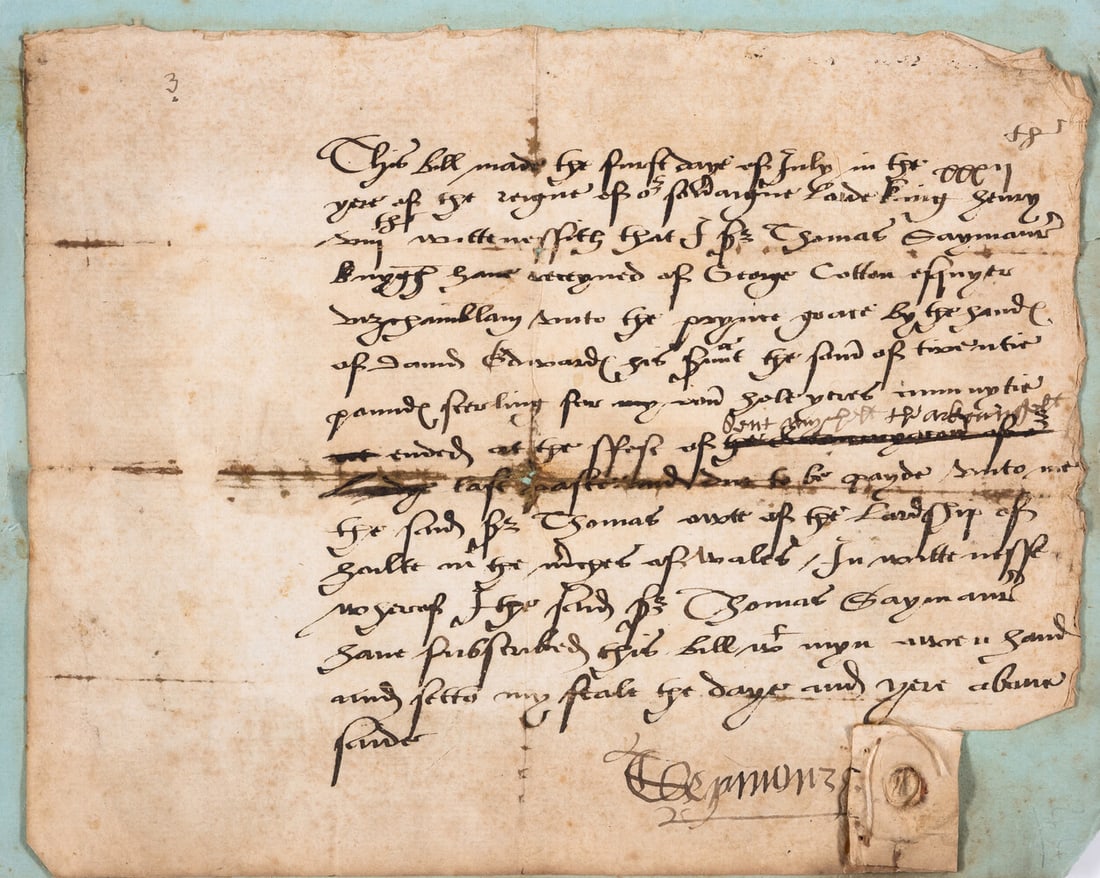 3
th
This bill made the furst daye of July in the xxxij
yere of the reigne of or sov'aigne Lorde king henry
viijth wittenessith that I Sr Thomas Saymour
knyght have receyved of George Cotton esquyer
vizchamblayn unto the prynce grace by the hands
of David Edwards his s'unt the som of twentie
pounds sterling for my hole yeres annuytie
ended at the ffest of
Sent mychell tharkeungell
last paste and due to be payde unto me
the said Sr Thomas owte of the Lordship of
holte in the m'ches of wales / In wittenesse
wherof I the said Sr Thomas Saymour
have subscribed this bill wt myn owen hand
and setto my seale the daye and yere above
saide
TSeymour